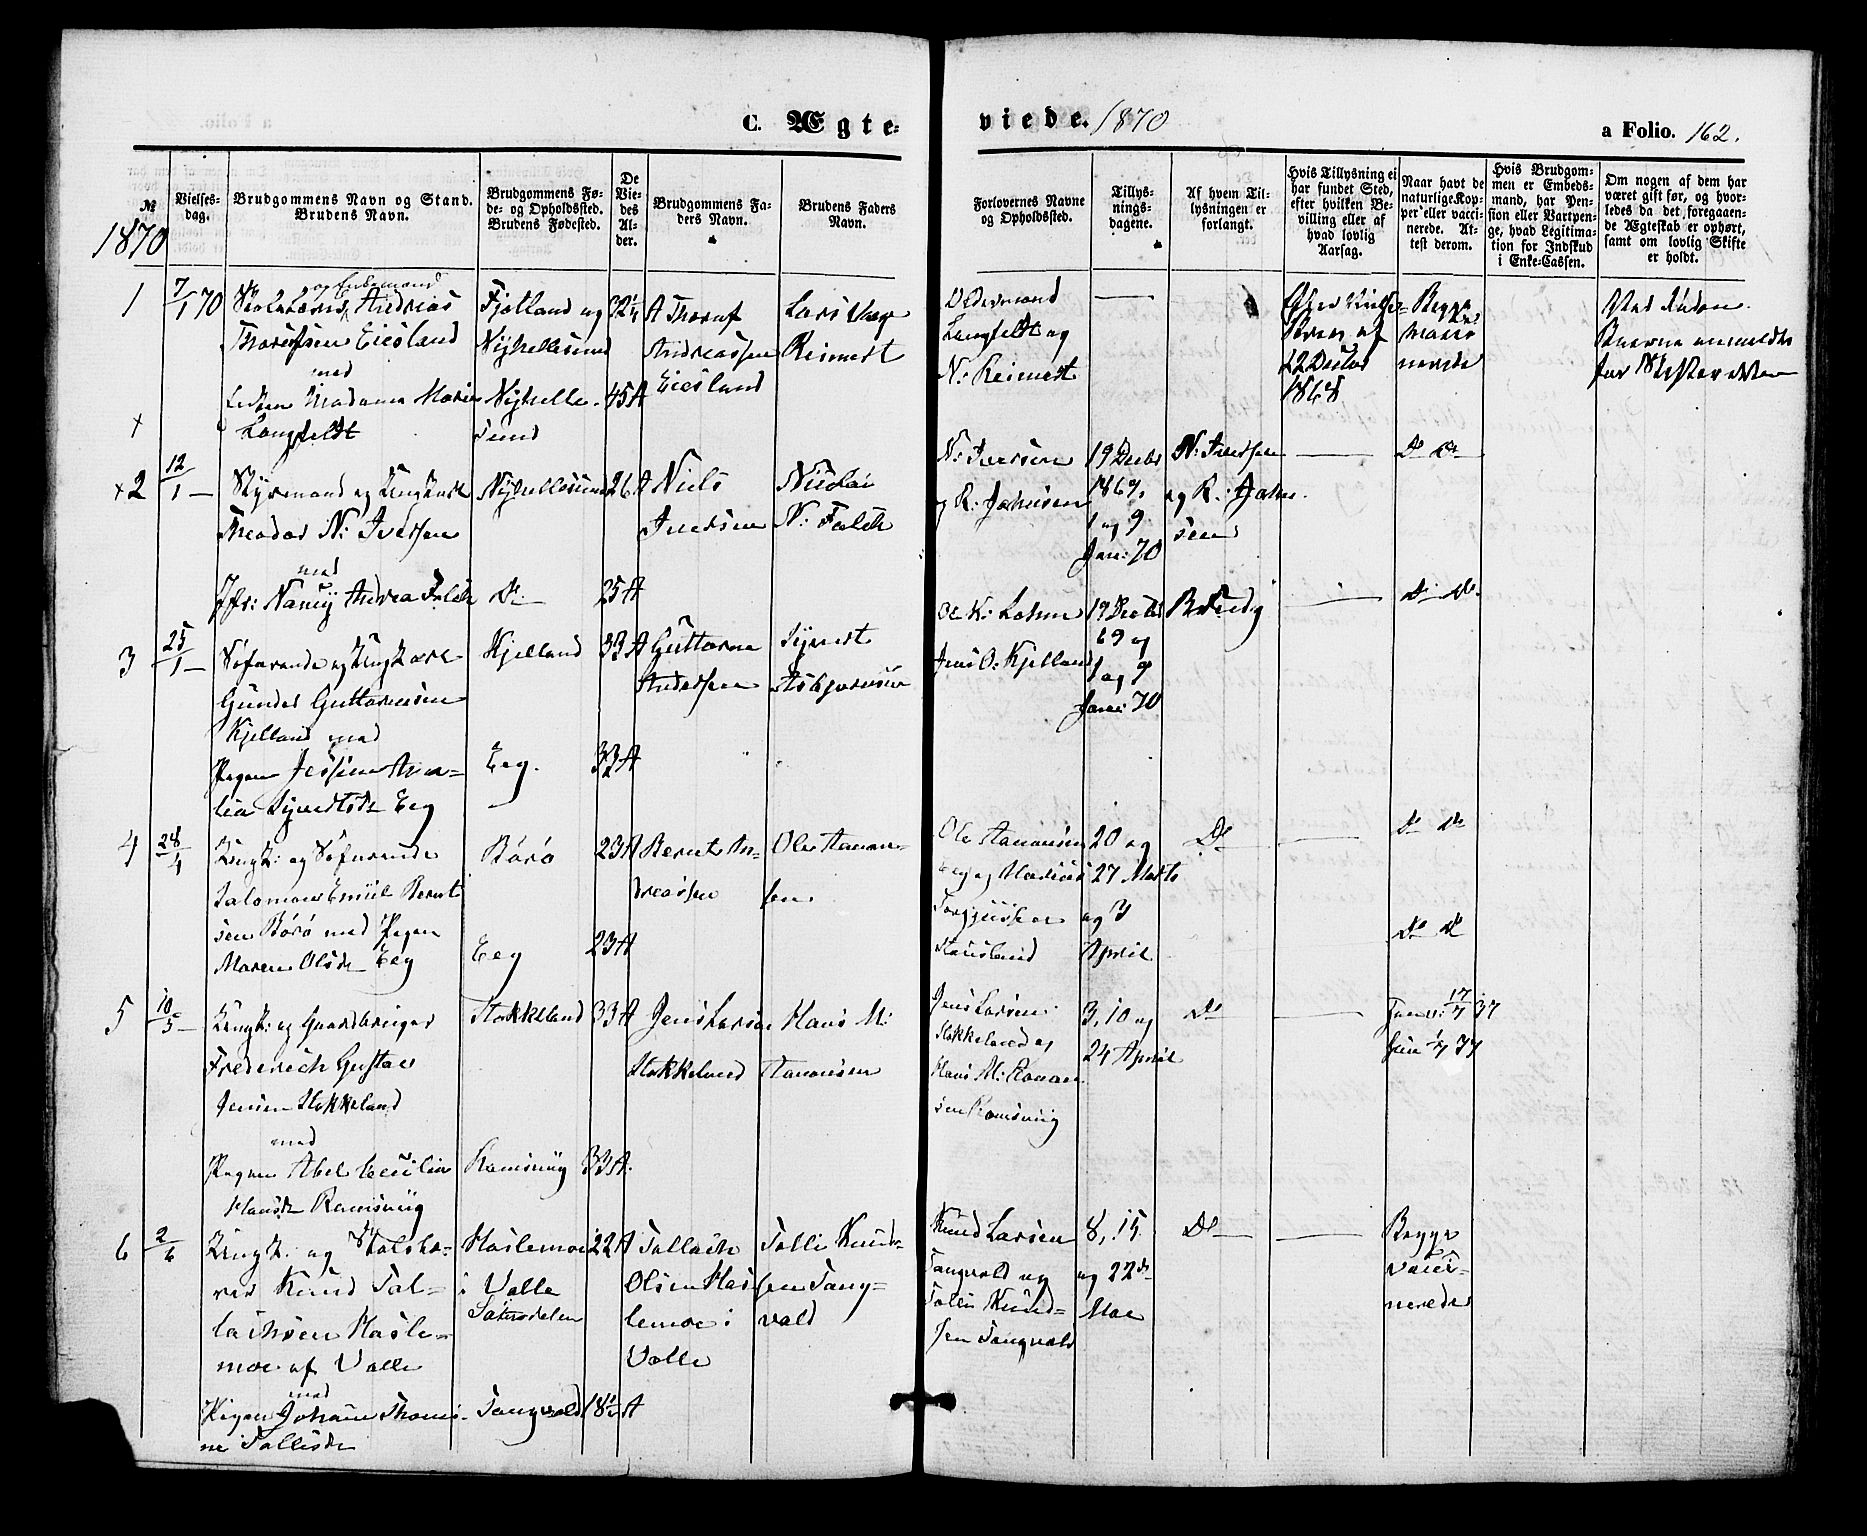 C. Ægte-
viede. 1870
a Folio. 162.
№
Vielses-
dag.
Brudgommens Navn og Stand.
Brudens Navn.
Brudgommens Fø-
de- og Opholdssted.
Brudens Fødested.
De
Vie-
des
Al-
der.
Brudgommens Fa-
ders Navn.
Brudens Faders
Navn.
Forlovernes Navne
og Opholdssted.
Tillys-
nings-
dagene.
Af hvem Til-
lysningen er
forlangt.
Hvis Tillysning ei
har fundet Sted,
efter hvilken Be-
villing eller af
hvad lovlig
Aarsag.
Naar havt de
naturlige Kop-
per eller vacci-
nerede. At-
test derom.
Hvis Brudgom-
men er Embeds-
mand, har Pen-
sion eller Vartpen-
ge, hvad Legitima-
tion for Indskud
i Enke-Cassen.
Om nogen af dem har
været gift før, og hvor-
ledes da det foregaaen-
de Ægteskab er ophørt,
samt om lovlig Skifte
er holdt.
1870
1
7/1 70
og Enkemand
Andreas
Eiesland
med
Madame Maren
Langfeldt
Fjotland og
Nyhellesund
Nyhelle-
sund
32 1/4 A
45 A
Thoruf
Andreassen
Eiesland
Lars
Reimert
Langfeldt og
N: Reimert
22
1868
Begge
nerede
+ 2
12/1 —
Styrmand og Ungkarl
Theodor N: Iversen
med
Jfr: Nancy Andrea Falch
Nyhellesund
Do
26 A
25 A
Niels
Iversen
Nicolai
N: Falch
N: Iversen
og R: Johnsen
19 Decbr
1869,
1 og 9
Jan: 70
N: Iversen
og R: John-
sen
Do Do
3
25/1 —
Søfarende og Ungkarl
Gunder Guttormsen
Kjelland med
Pigen
Syvertsdr Eeg
Kjelland
Eeg.
33 A
33 A
Guttorm
Andersen
Syvert
Asbjørnsen
Ole K:
Jens O: Kjelland
19 Decbr
69 og
1 og 9
Janu: 70
Do Do
4
28/4
Ungk: og Søfarende
Salomon Emil Bernt
sen Børø med Pigen
Maren Olsdr Eeg
Børø
Eeg
23 A
23 A
Bernt An-
dreassen
Ole Aanon-
sen
Ole Aanonsen
Eeg og
20 og
27 Marts
og 3
April
Do
Do Do
Do Do
5
10/5 —
Ungk: og Gaardbruger
Frederich Gustav
Jensen Stokkeland
med
Pigen Abel Cecilia
Hansdr Ramsviig
Stokkeland
Ramsviig
33 A
33 A.
Jens Larsen
Stokkeland
Hans M:
Aanonsen
Jens Larsen
Stokkeland og
Hans M: Aanon
sen Ramsviig
3, 10 og
24 April
Do
17/7 37
37
6
2/6
Ungk: og Skolehol-
rer Knud Tal-
lachsen Hasle-
moe af Valle
med
Pigen Johanne Thomi-
ne Tallisdr
Haslemoe
i Valle
Sætersdalen
Tangvald
22 A
18 1/2 A
Tallach
Olsen Has
lemoe i
Valle
Talli Knud-
sen Tang-
vald
Knud Larsen
Tangvald og
Talli Knud-
sen Tangvald
8, 15
og 22de
Mai
Do
Begge
vacci-
nerede